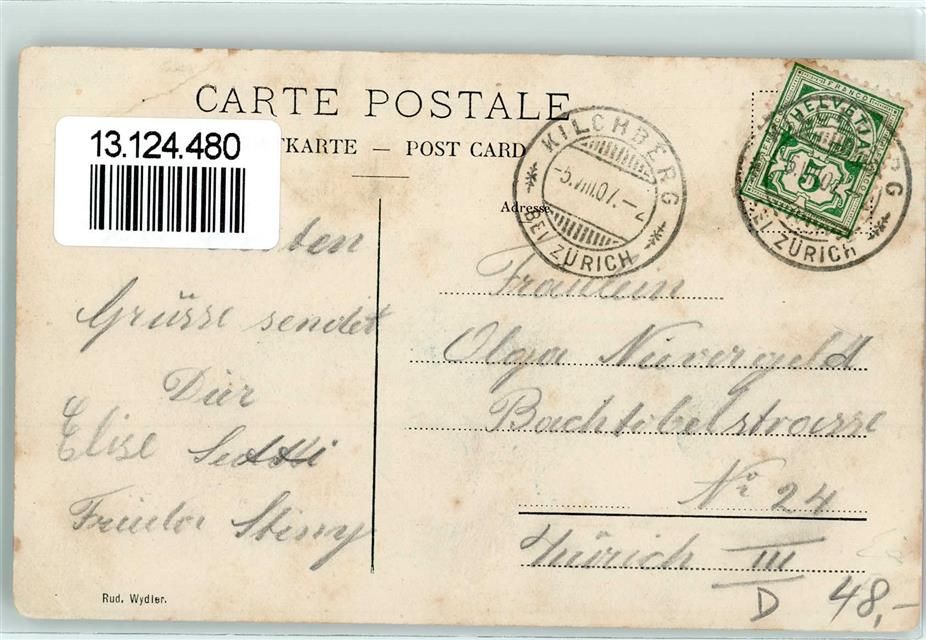 CARTE POSTALE
13.124.480
TKARTE — POST CARD
KILCHBERG
-5.VIII.07.–
BEI ZÜRICH
FRANCO
HELVETIA
5
RG
BEI ZÜRICH
Adresse
Grüsse sendet
Dir
Elise
Frieda
Fräulein
Olga Nievergelt
Bachtobelstrasse
No 24
Zürich III
D 48,-
Rud. Wydler.